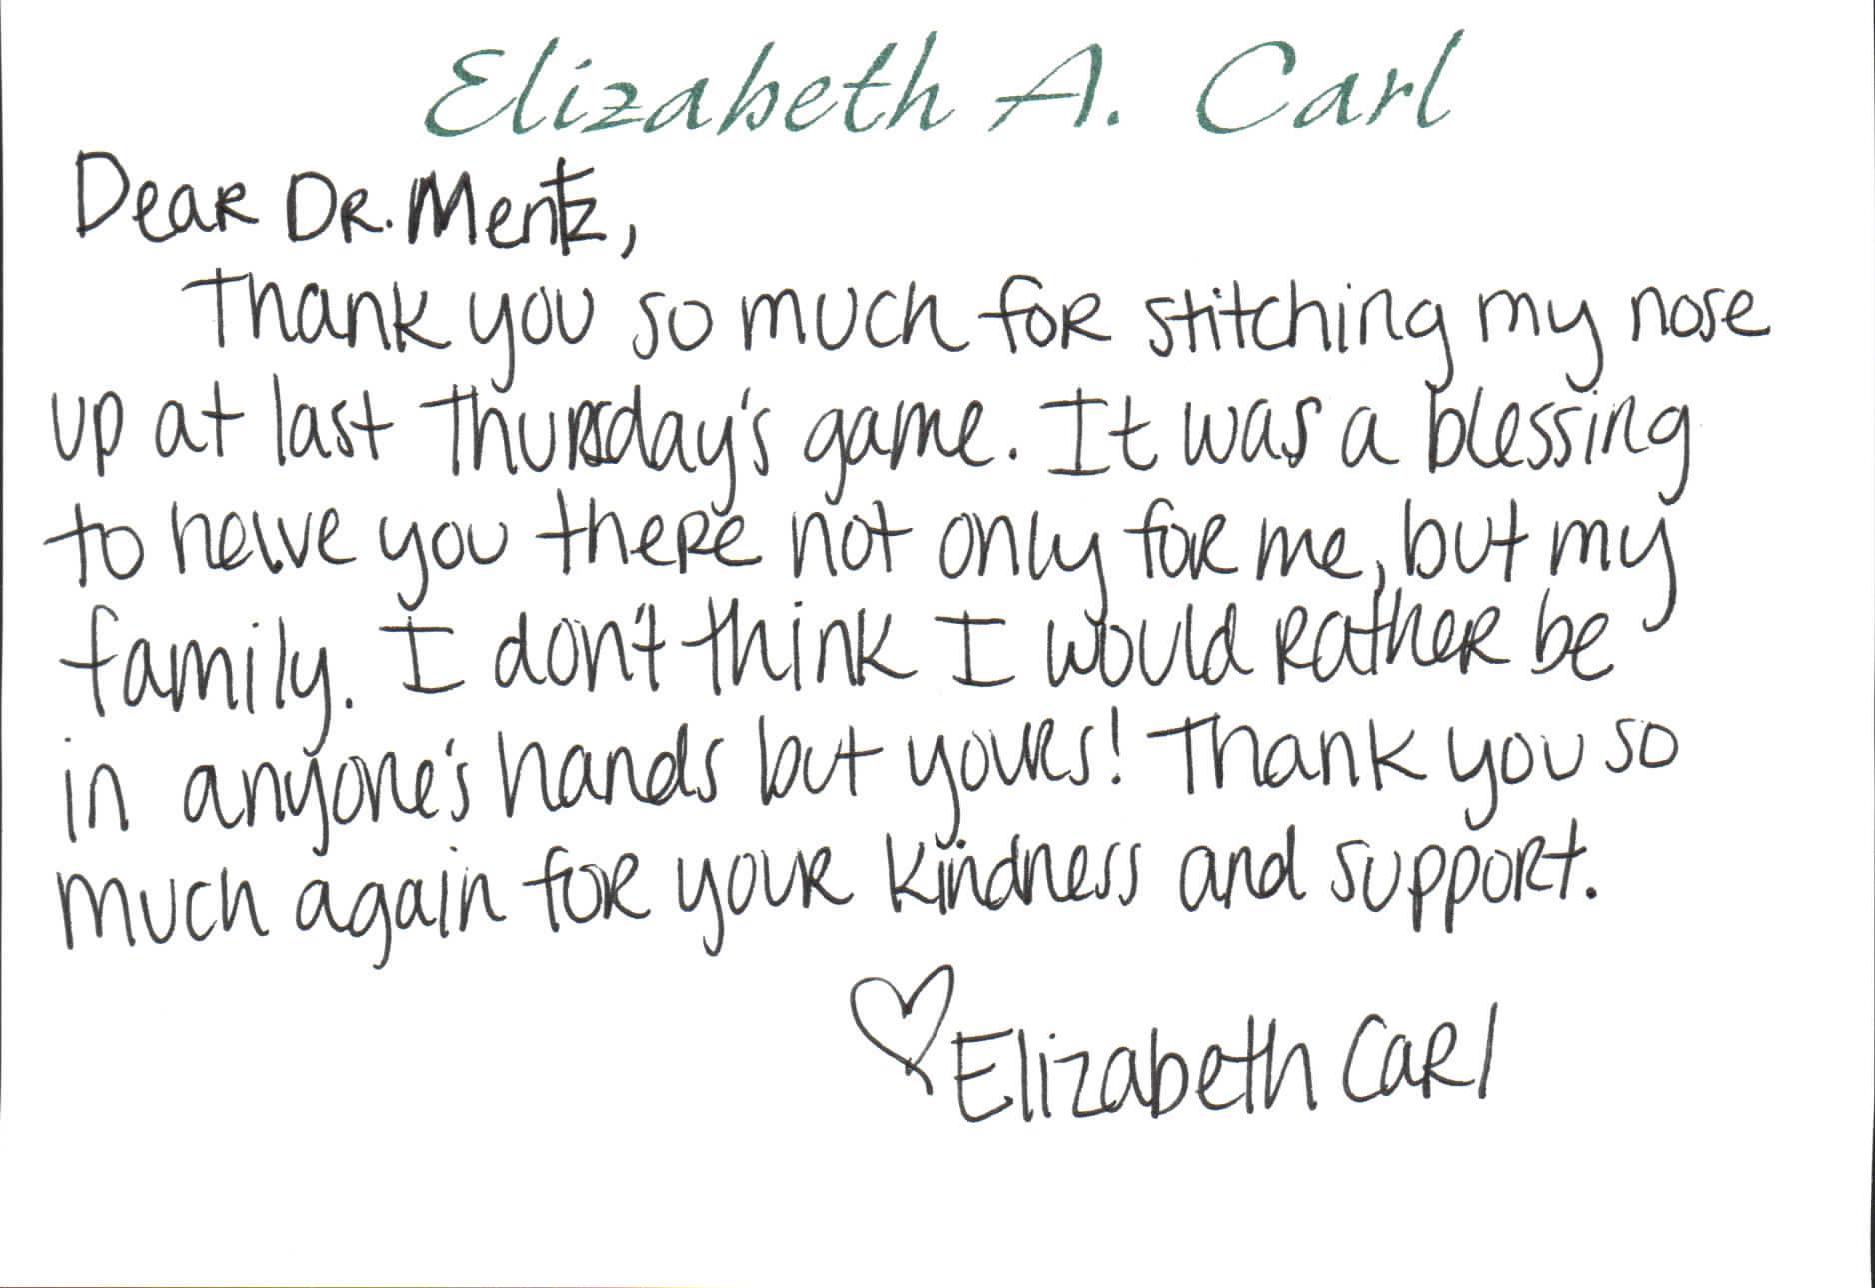 Elizabeth A. Carl
Dear Dr. Mentz,
Thank you so much for stitching my nose
up at last Thursday's game. It was a blessing
to have you there not only for me, but my
family. I don't think I would rather be
in anyone's hands but yours! Thank you so
much again for your kindness and support.
♡ Elizabeth Carl